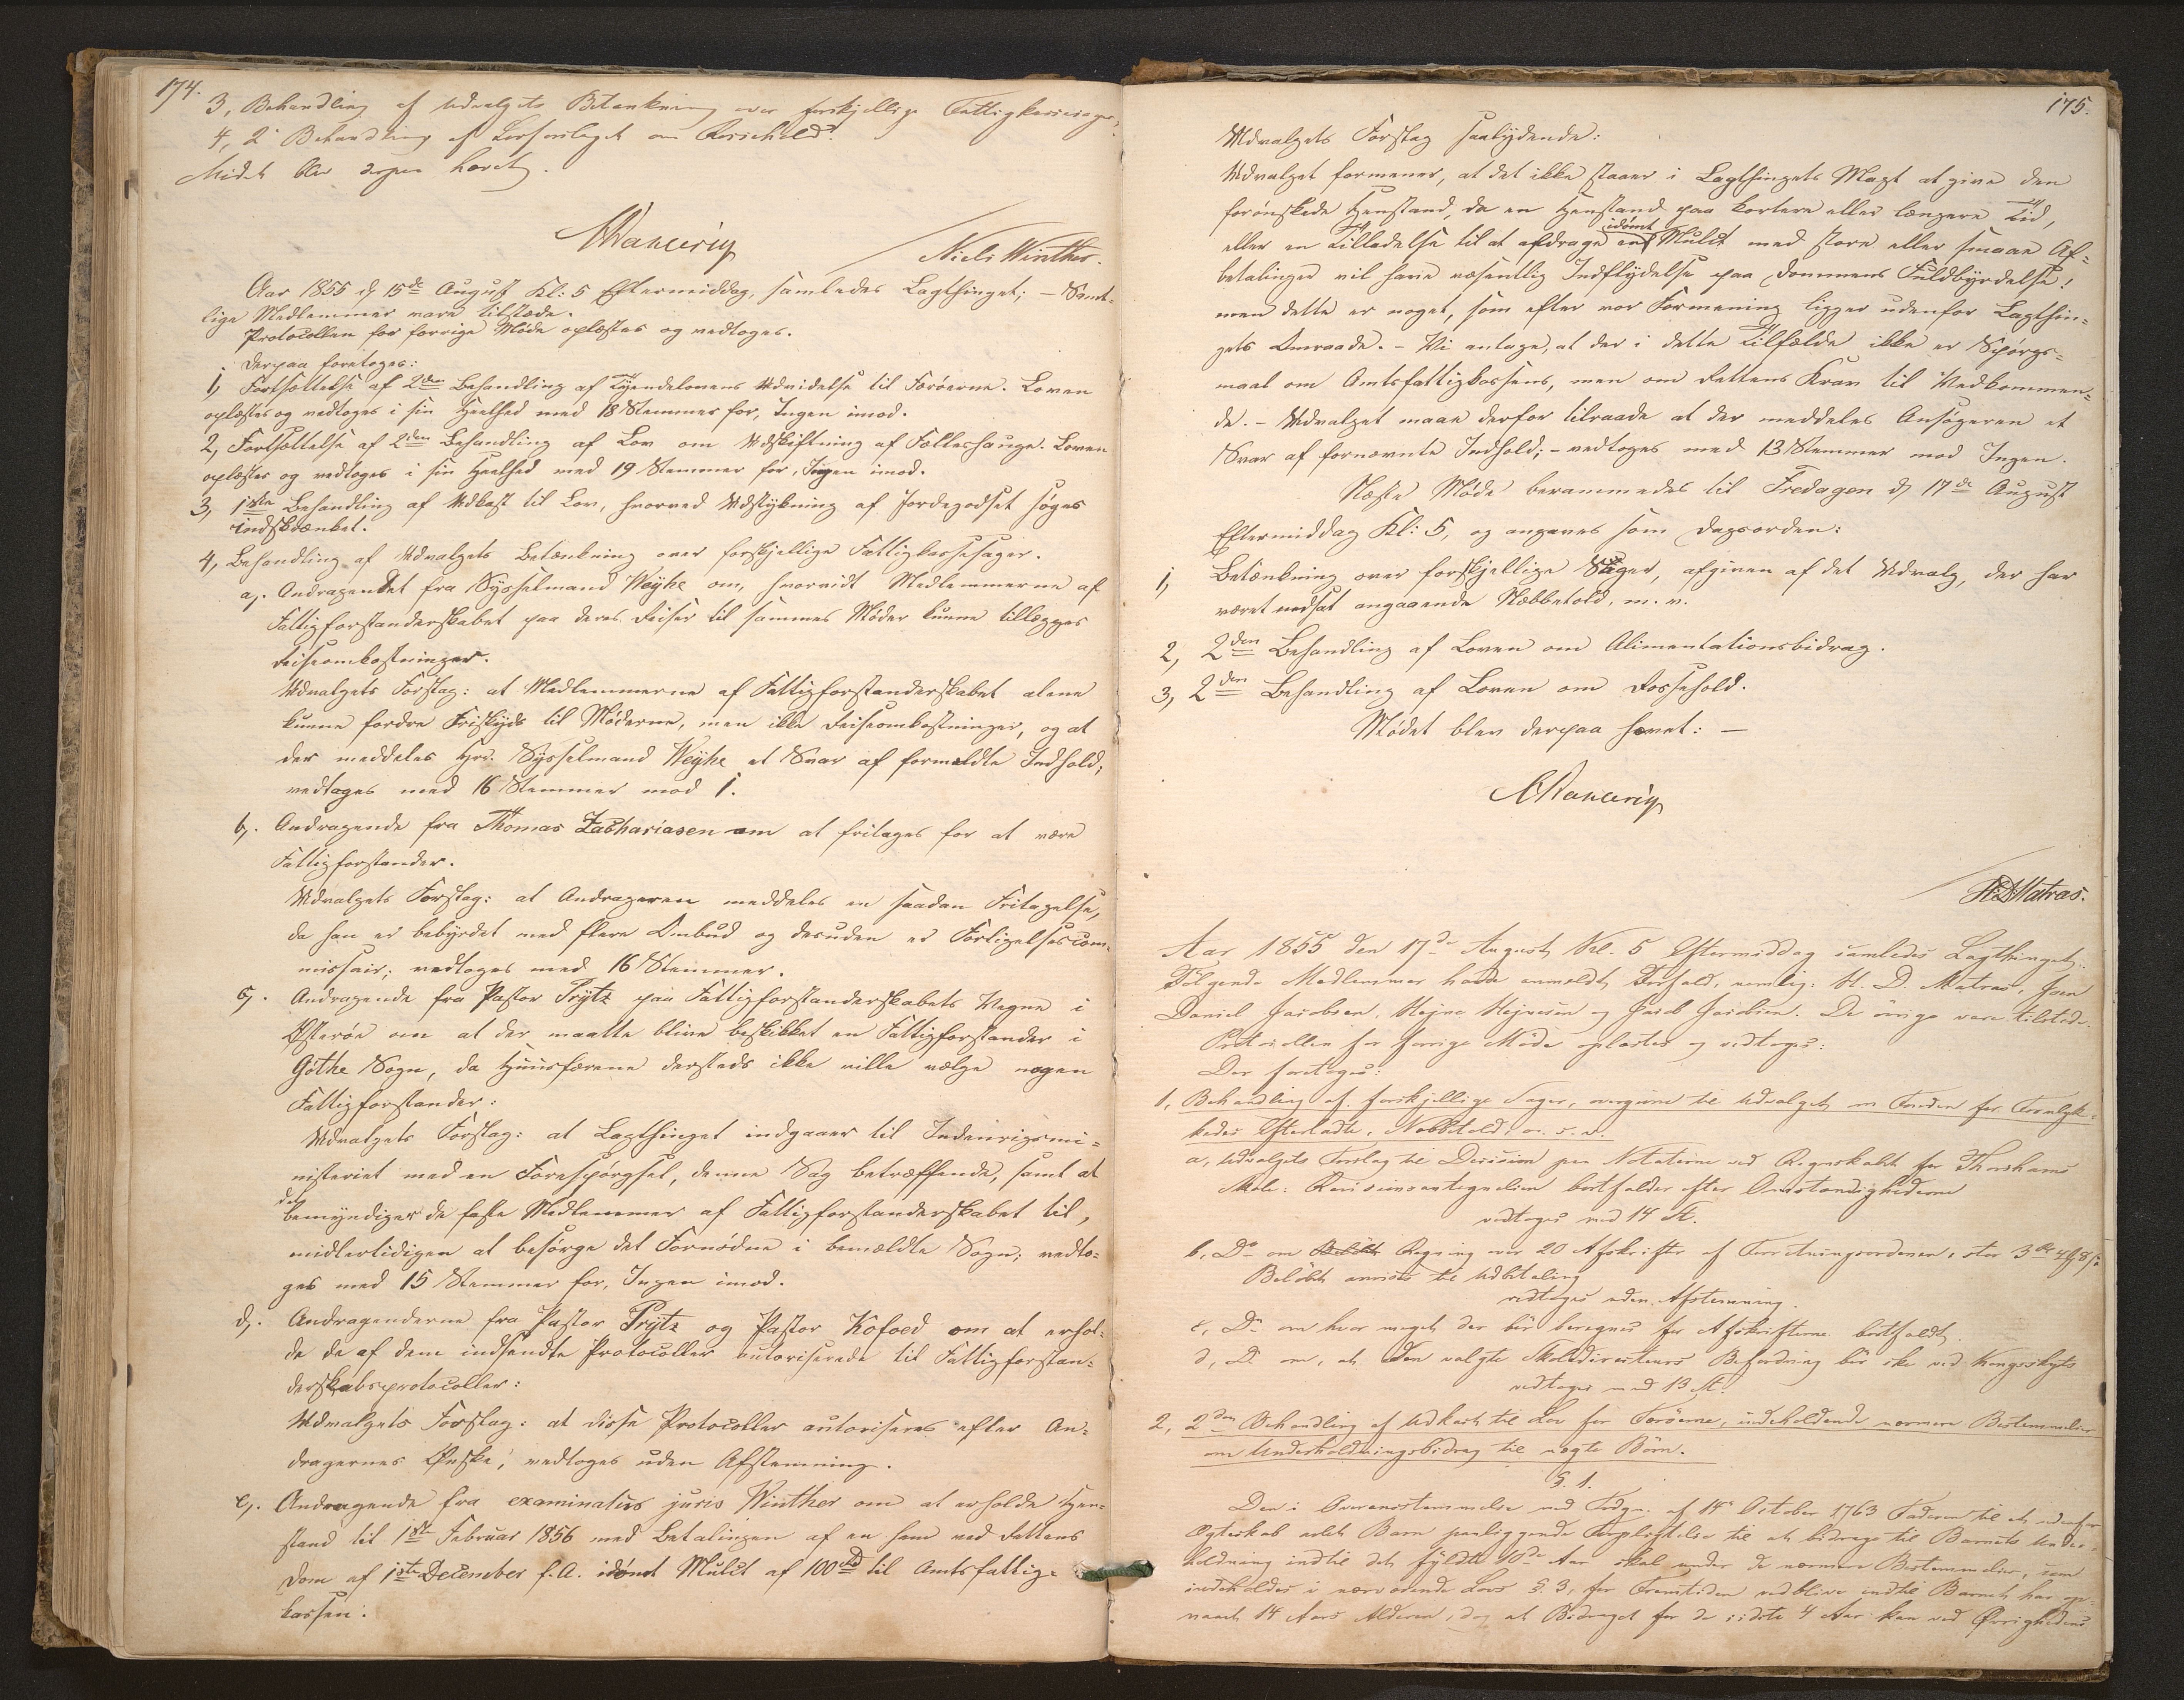 174.
3, Behandling af Udvalgets Betænkning over forskjellige Fattigkassesager,
4, 2 Behandling af Lovforslaget om Rossehold.
Mødet blev derpaa hævet.
CDahlerup
Niels Winther.
Aar 1855 d 15de August Kl: 5 Eftermiddag, samledes Lagthinget; – Samt-
lige Medlemmer vare tilstede.
Protocollen for forrige Møde oplæstes og vedtoges.
Derpaa foretoges:
1, Fortsættelse af 2den Behandling af Tyendelovens Udvidelse til Færøerne. Loven
oplæstes og vedtoges i sin Heelhed med 18 Stemmer for, Ingen imod.
2, Fortsættelse af 2den Behandling af Lov om Udskiftning af Fælleshauge. Loven
oplæstes og vedtoges i sin Heelhed med 19 Stemmer for, Ingen imod.
3, 1ste Behandling af Udkast til Lov, hvorved Udstykning af Jordegodset søges
indskrænket.
4, Behandling af Udvalgets Betænkning over forskjellige Fattigkassesager.
a,. Andragendet fra Sysselmand Weyhe om, hvorvidt Medlemmerne af
Fattigforstanderskabet paa deres Reiser til sammes Møder kunne tillægges
Reiseomkostninger.
Udvalgets Forslag: at Medlemmerne af Fattigforstanderskabet alene
kunne fordre Friskyds til Møderne, men ikke Reiseomkostninger, og at
der meddeles Hr. Sysselmand Weyhe et Svar af formeldte Indhold;
vedtoges med 16 Stemmer mod 1.
b,. Andragende fra Thomas Zachariasen om at fritages for at være
Fattigforstander.
Udvalgets Forslag: at Andrageren meddeles en saadan Fritagelse,
da han er bebyrdet med flere Ombud og desuden er Forligelsescom-
missair; vedtoges med 16 Stemmer.
c,. Andragende fra Pastor Prytz paa Fattigforstanderskabets Vegne i
Østerøe om at der maatte blive beskikket en Fattigforstander i
Gøthe Sogn, da Huusfærene dersteds ikke ville vælge nogen
Fattigforstander:
Udvalgets Forslag: at Lagthinget indgaaer til Indenrigsmi-
nisteriet med en Forespørgsel, denne Sag betræffende, samt at
det
bemyndiger de faste Medlemmer af Fattigforstanderskabet til,
midlertidigen at besørge det Fornødne i bemældte Sogn; vedto-
ges med 15 Stemmer for, Ingen imod.
d,. Andragenderne fra Pastor Prytz og Pastor Kofoed om at erhol-
de de af dem indsendte Protocoller autoriserede til Fattigforstan-
derskabsprotocoller:
Udvalgets Forslag: at disse Protocoller autoriseres efter An-
dragernes Ønske; vedtoges uden Afstemning.
e,. Andragende fra examinatus juris Winther om at erholde Hen-
stand til 1ste Februar 1856 med Betalingen af en ham ved Rettens
Dom af 1ste December f.A. idømt Mulct af 100 rd til Amtsfattig-
kassen.
175.
Udvalgets Forslag saalydende:
Udvalget formener, at det ikke staaer i Lagthingets Magt at give den
forønskede Henstand, da en Henstand paa kortere eller længere Tid,
idømt
eller en Tilladelse til at afdrage en Mulct med store eller smaae Af-
betalinger vil have væsentlig Indflydelse paa Dommens Fuldbyrdelse;
men dette er noget, som efter vor Formening ligger udenfor Lagthin-
gets Omraade. – Vi antage, at der i dette Tilfælde ikke er Spørgs-
maal om Amtsfattigkassens, men om Rettens Krav til Vedkommen-
de. – Udvalget maae derfor tilraade at der meddeles Ansøgeren et
Svar af fornævnte Indhold; – vedtoges med 13 Stemmer mod Ingen.
Næste Møde berammedes til Fredagen d 17de August
Eftermiddag Kl: 5, og angaves som Dagsorden:
1, Betænkning over forskjellige Sager, afgiven af det Udvalg, der har
været nedsat angaaende Næbbetold, m. v.
2, 2den Behandling af Loven om Alimentationsbidrag.
3, 2den Behandling af Loven om Rossehold.
Mødet blev derpaa hævet: –
CDahlerup
H.D. Matras.
Aar 1855 den 17de August Kl. 5 Eftermiddag samledes Lagthinget.
Følgende Medlemmer havde anmeldt Forfald, nemlig: H. D. Matras, Joen
Daniel Jacobsen, Hejne Hejnesen og Jacob Jacobsen. De øvrige vare tilstede.
Protocollen for forrige Møde oplæstes og vedtoges:
Der foretoges:
1, Behandling af forskjellige Sager, overgivne til Udvalget om Fonden for Forulyk-
kedes Efterladte, Næbbetold o. s. v.
a, Udvalgets Forslag til Decision paa Notaterne ved Regnskabet for Thorshavns
Skole: Revisionsantegnelsen bortfalder efter Omstændighederne
vedtoges med 14 St.
b, Do om Regning over 20 Afskrifter af Forretningsordenen, stor 3 rd 4 Mk 8 s:
Beløbet anvises til Udbetaling
vedtoges uden Afstemning.
c, Do om hvor meget der bør beregnes for Afskrifterne bortfaldt.
d, Do om, at den valgte Skoledirecteurs Befordring bør ske ved Kongsskyts
vedtoges med 13 St.
2, 2den Behandling af Udkast til Lov for Færøerne, indeholdende nærmere Bestemmelser
om Underholdningsbidrag til uægte Børn.
§. 1.
Den i Overensstemmelse med Frdgn. af 14 October 1763 Faderen til et udenfor
Ægteskab avlet Barn paaliggende Forpligtelse til at bidrage til Barnets Under-
holdning indtil det fyldte 10de Aar skal under de nærmere Bestemmelser, som
indeholdes i nærværende Lovs §. 3, for Fremtiden vedblive indtil Barnet har op-
naaet 14 Aars Alderen, dog at Bidraget for de sidste 4 Aar kan ved Øvrighedens